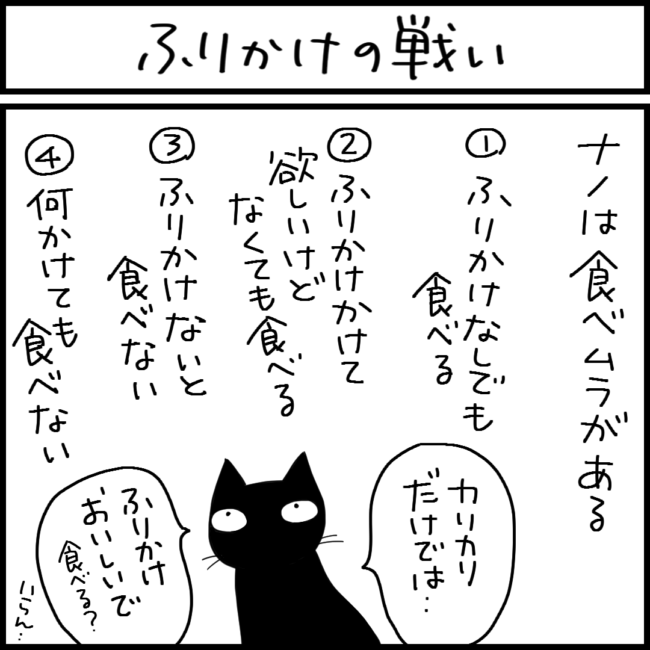 ふりかけの戦い
ナノは食べムラがある
①ふりかけなしでも
食べる
②ふりかけかけて
欲しいけど
なくても食べる
③ふりかけないと
食べない
④何かけても
食べない
カリカリ
だけでは…
ふりかけ
おいしいで
食べる？
いらん…